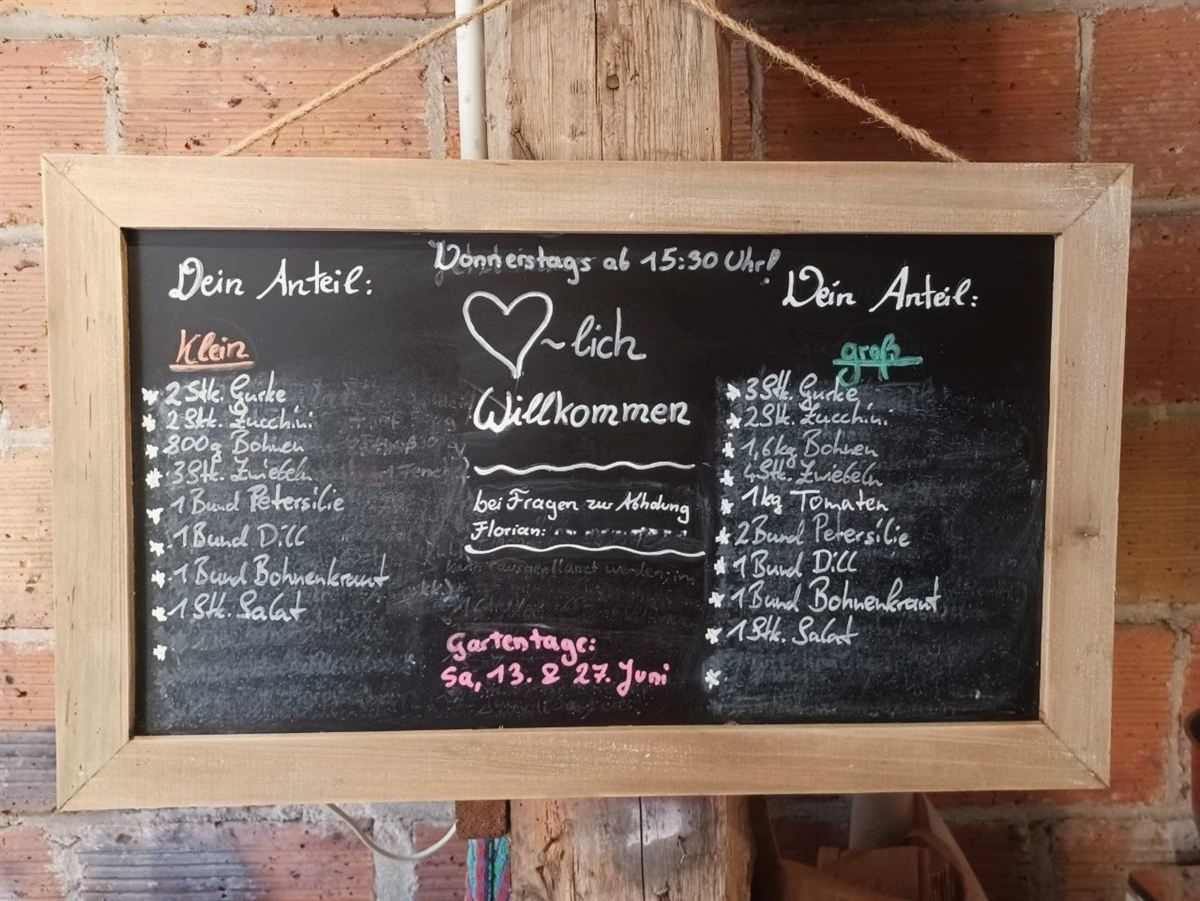 Donnerstags ab 15:30 Uhr!
Dein Anteil:
Klein
* 2 Stk. Gurke
* 2 Stk. Zucchini
* 800g Bohnen
* 3 Stk. Zwiebeln
* 1 Bund Petersilie
* 1 Bund Dill
* 1 Bund Bohnenkraut
* 1 Stk. Salat
*
♡~lich
Willkommen
bei Fragen zur Abholung
Florian:
Gartentage:
Sa, 13. & 27. Juni
Dein Anteil:
groß
* 3 Stk. Gurke
* 2 Stk. Zucchini
* 1,6kg Bohnen
* 4 Stk. Zwiebeln
* 1kg Tomaten
* 2 Bund Petersilie
* 1 Bund Dill
* 1 Bund Bohnenkraut
* 1 Stk. Salat
*